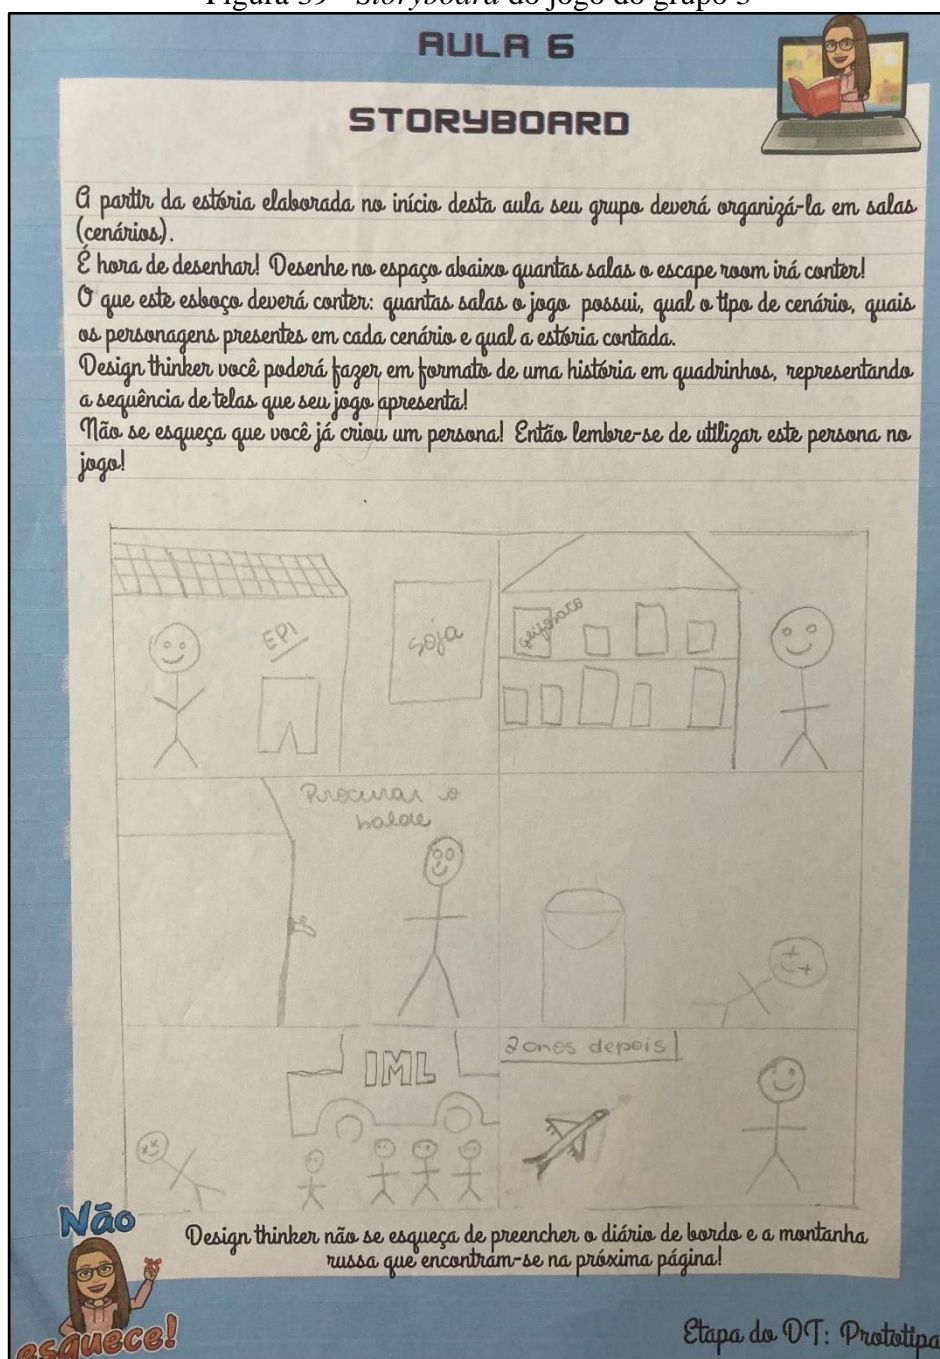 Figura 39 - Storyboard do jogo do grupo 3
AULA 6
STORYBOARD
A partir da estória elaborada no início desta aula seu grupo deverá organizá-la em salas
(cenários).
É hora de desenhar! Desenhe no espaço abaixo quantas salas o escape room irá conter!
O que este esboço deverá conter: quantas salas o jogo possui, qual o tipo de cenário, quais
os personagens presentes em cada cenário e qual a estória contada.
Design thinker você poderá fazer em formato de uma história em quadrinhos, representando
a sequência de telas que seu jogo apresenta!
Não se esqueça que você já criou um persona! Então lembre-se de utilizar este persona no
jogo!
EPI
soja
glifosato
Procurar o
balde
IML
2 anos depois
Não
esquece!
Design thinker não se esqueça de preencher o diário de bordo e a montanha
russa que encontram-se na próxima página!
Etapa do DT: Prototipa